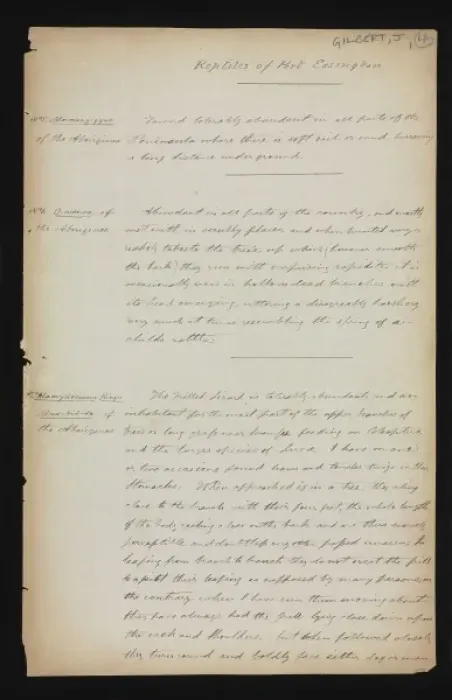 GILBERT, J,
Reptiles of Port Essington
Found tolerably abundant in all parts of the
of the Aborigines Peninsula where there is soft soil or mud burrowing
a long distance underground.
of Abundant in all parts of the country, and mostly
the Aborigines met with in places and when hunted
takes to the trees, up which (however smooth
the bark) they run with surprising rapidity, it is
occasionally seen in hollow dead branches with
its head emerging, uttering a disagreeable
very much at times resembling the spring of a
childs rattle.
The Frilled Lizard, is tolerably abundant, and an
of inhabitant for the most part of the upper branches of
the Aborigines trees or long grass near feeding on Coleoptera
and the larger species of I have on one
or two occasions found leaves and tender twigs in their
Stomachs. When approached if in a tree, they cling
close to the branch with their fore feet, the whole length
of the body close to the bark and are thus scarcely
perceptible and doubtless very often passed unseen. In
leaping from branch to branch they do not erect the frill
to assist their leaping as supposed by many persons, on
the contrary when I have seen them moving about
they have always had the frill lying close down upon
the neck and shoulders. but when followed closely
they turn round and boldly face either dog or man